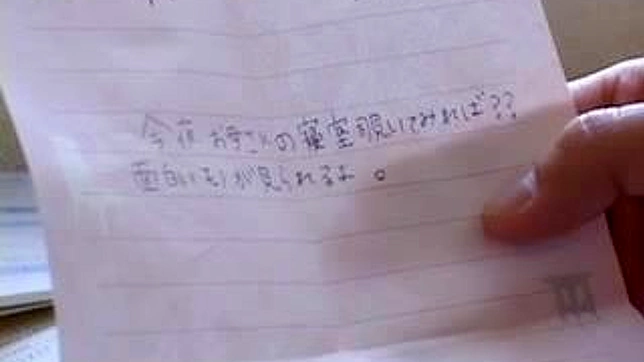 今夜 の寝室覗いてみれば??
面白いものが見られるよ。